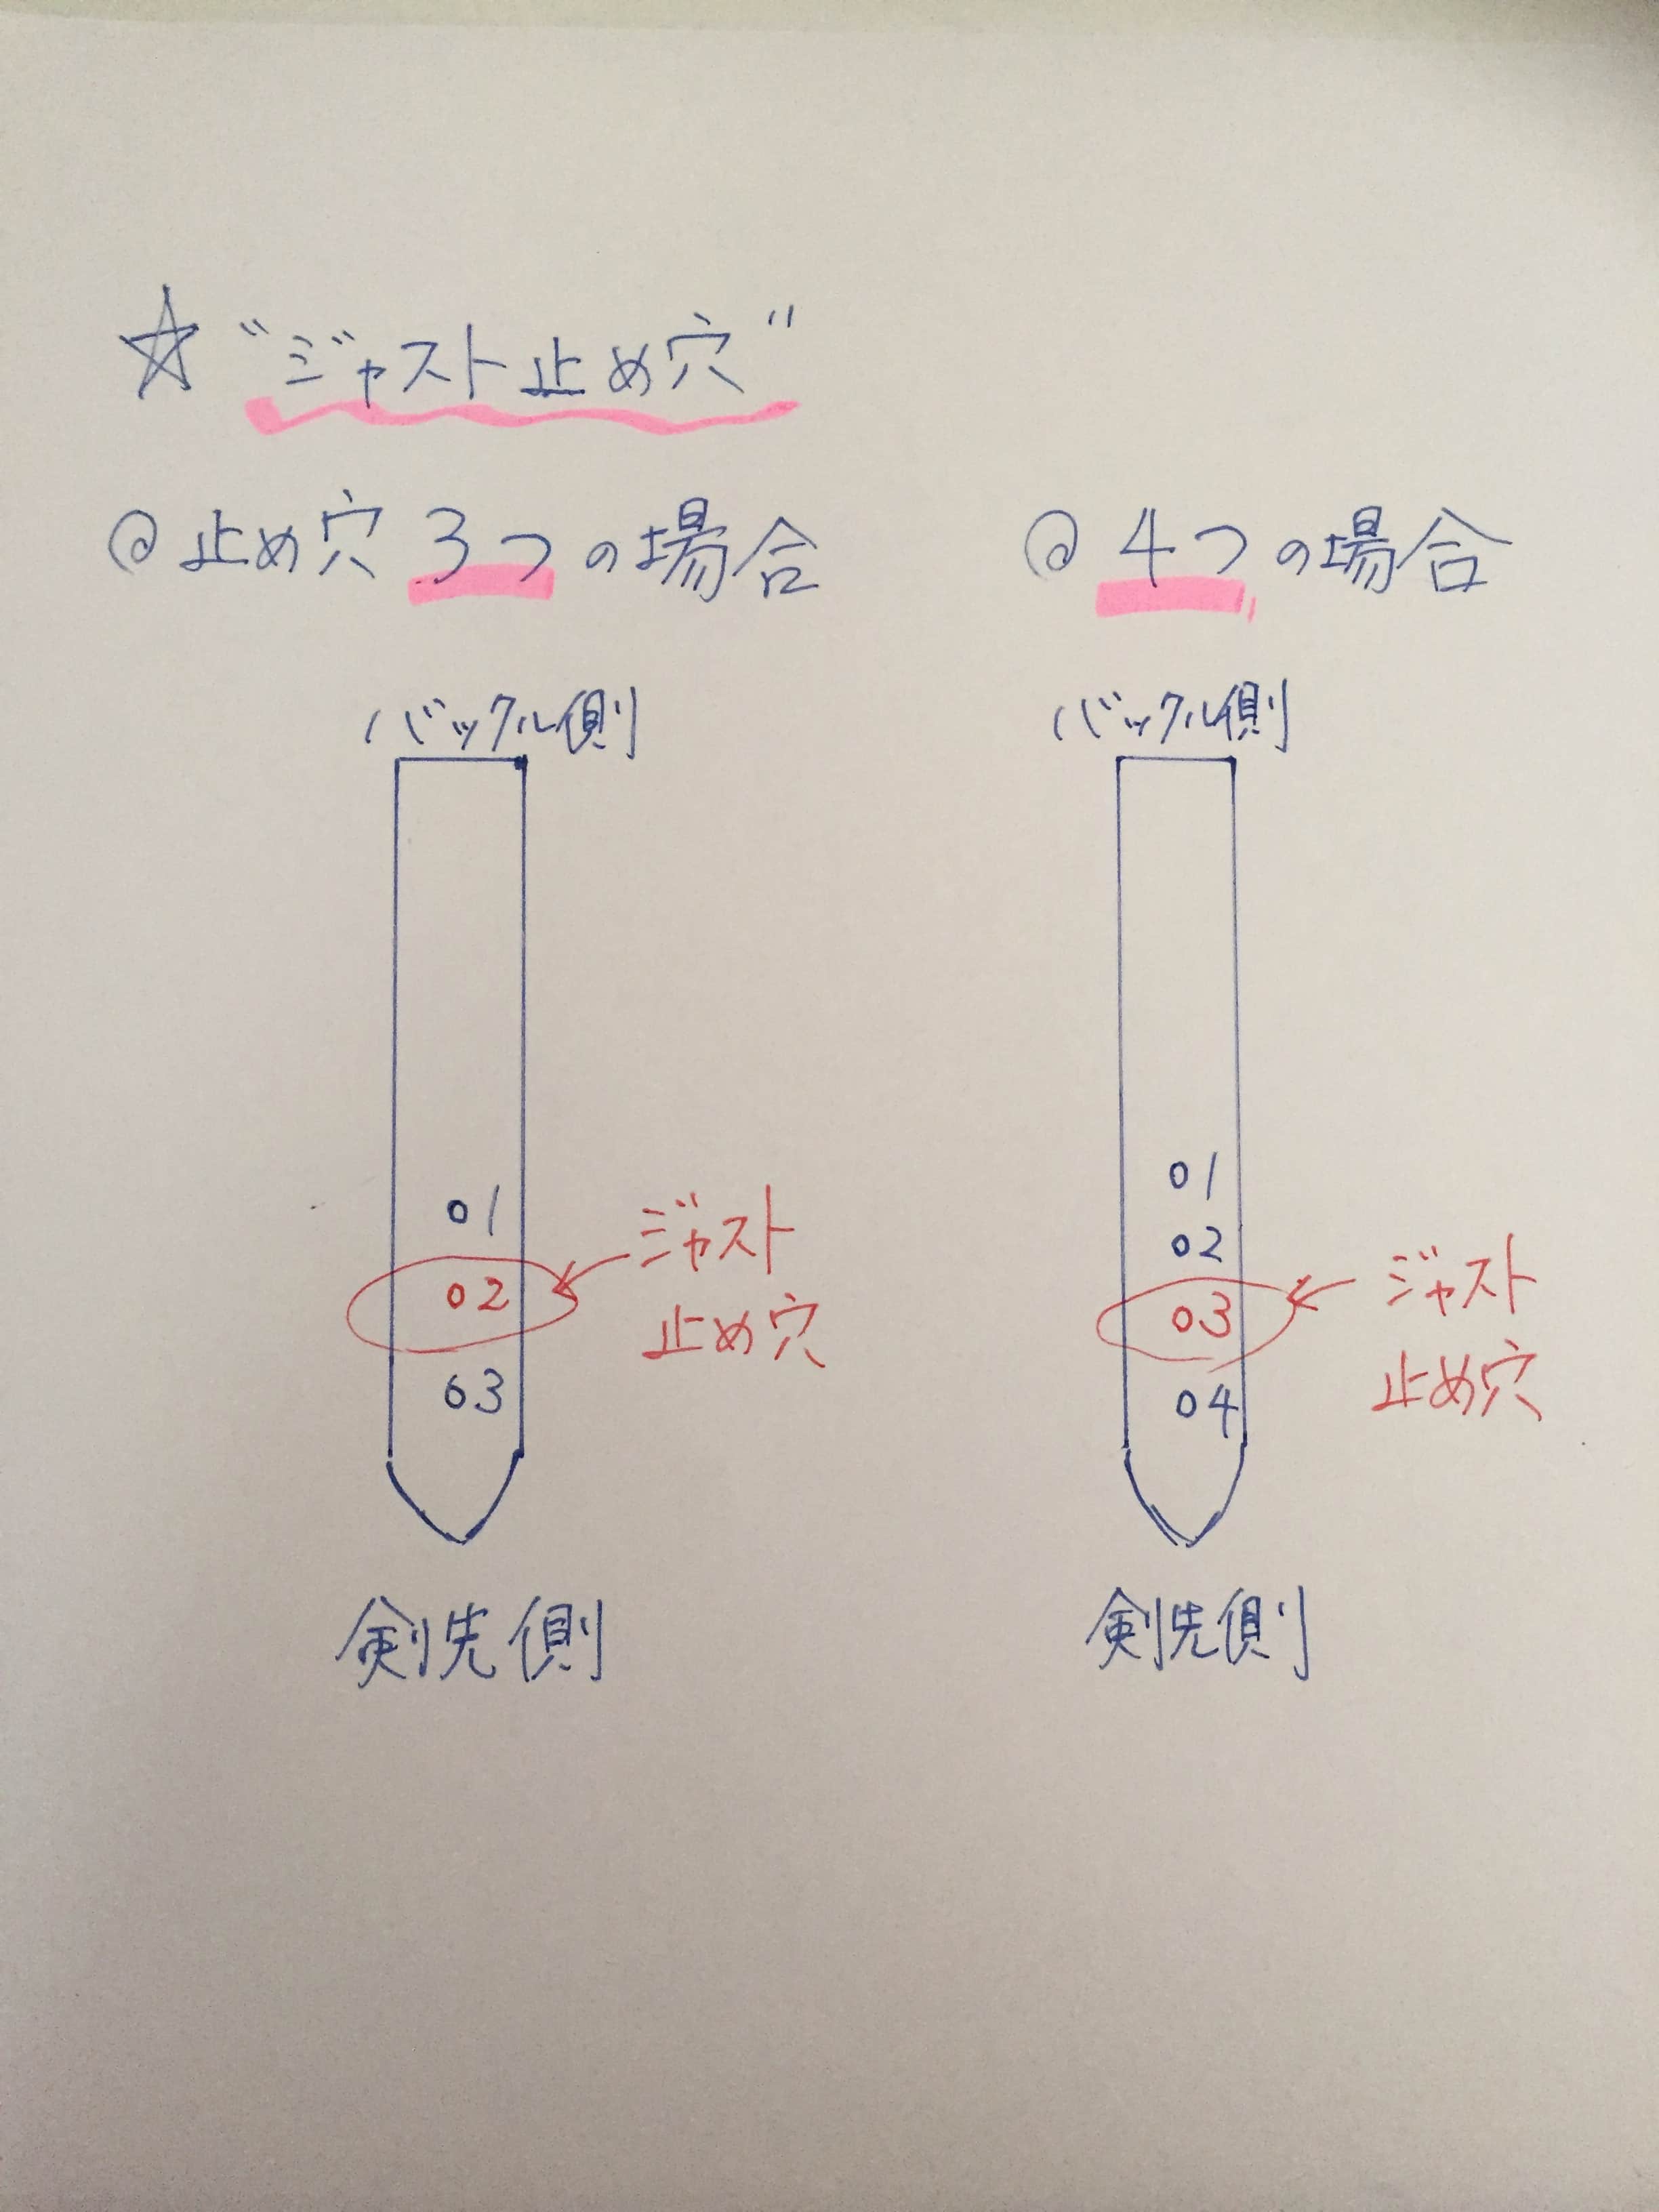 ☆ "ジャスト止め穴"
@ 止め穴 3つの場合
バックル側
01
02
03
ジャスト
止め穴
剣先側
@ 4つの場合
バックル側
01
02
03
04
ジャスト
止め穴
剣先側